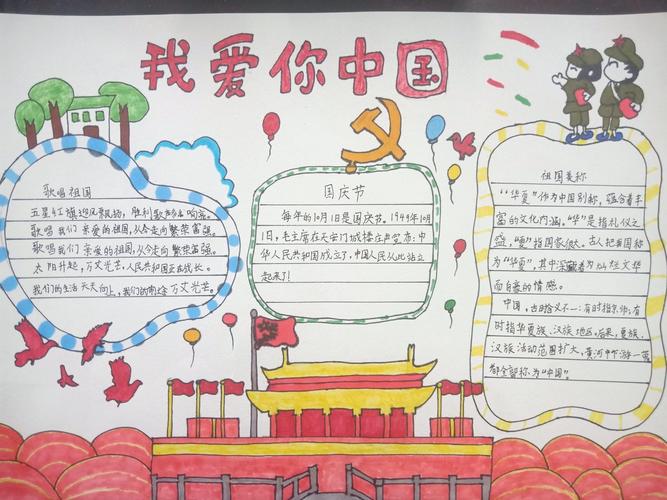 我爱你中国
歌唱祖国
五星红旗迎风飘扬,胜利歌声多么响亮。
歌唱我们亲爱的祖国,从今走向繁荣富强。
歌唱我们亲爱的祖国,从今走向繁荣富强。
太阳升起,万丈光芒,人民共和国正在成长。
我们的生活天天向上,我们的前途万丈光芒。
国庆节
每年的10月1日是国庆节。1949年10月
1日,毛主席在天安门城楼庄严宣布:中
华人民共和国成立了,中国人民从此站立
起来了!
祖国美称
“华夏”作为中国别称,蕴含着丰
富的文化内涵。“华”是指礼仪之
盛,“夏”指国家
古人把祖国称
为“华夏”,其中深藏着为灿烂文华
而自豪的情感。
中国,古时含义不一:有时指京师;有
时指华夏族、汉族地区,后来,夏族、
汉族活动范围扩大,黄河中下游一带
都全部称为“中国”。